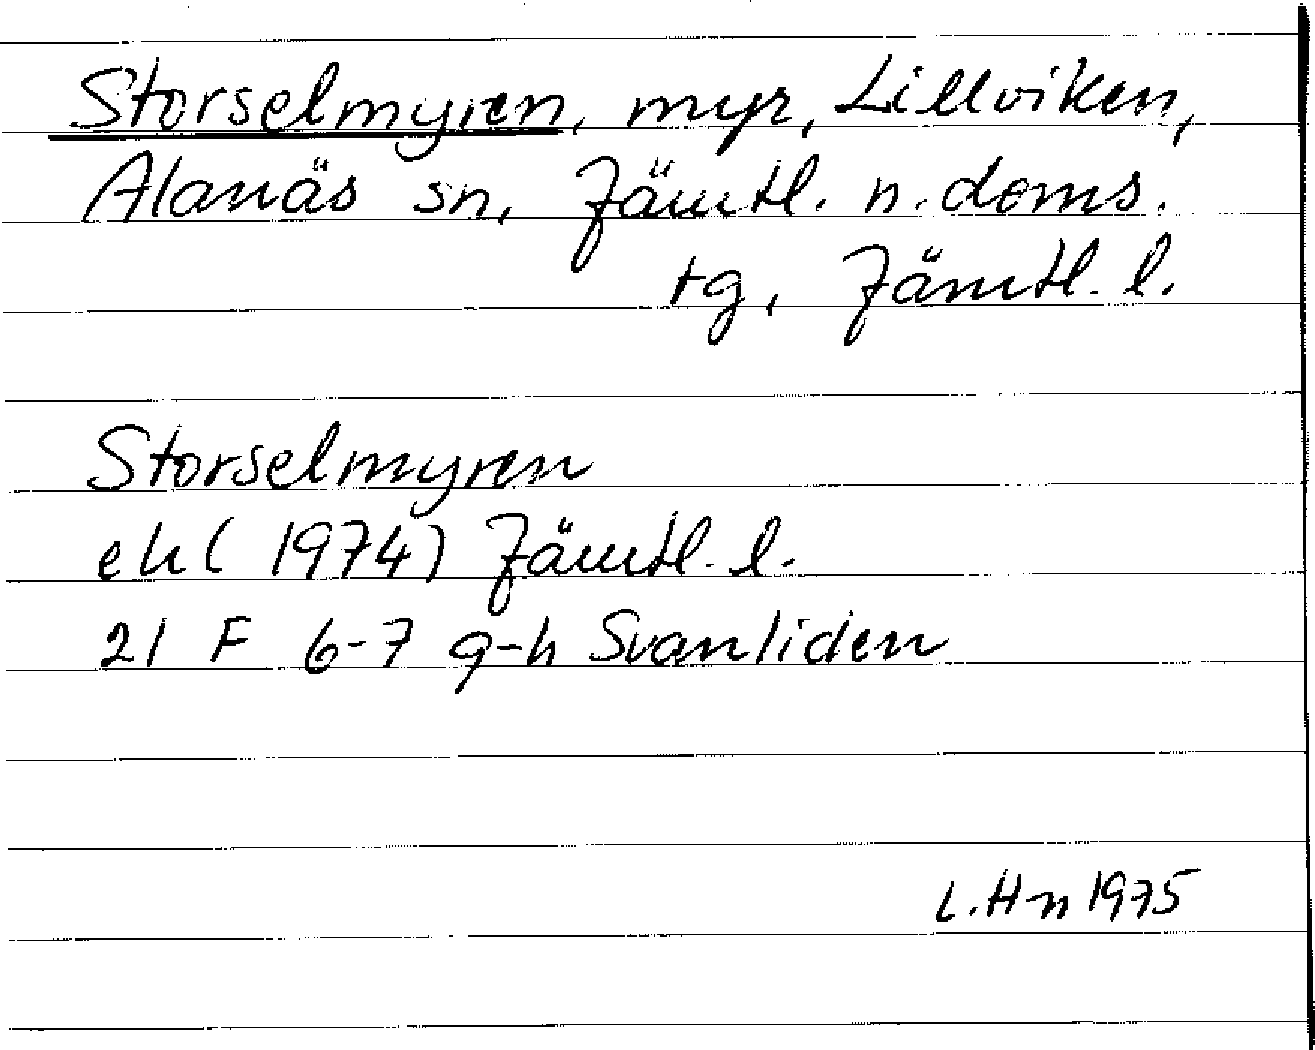 Storselmyren, myr, Lillviken,
Alanäs sn, Jämtl. n. doms.
tg, Jämtl. l.
Storselmyren
ek (1974) Jämtl. l.
21 F 6-7 g-h Svanliden
L. Hn 1975